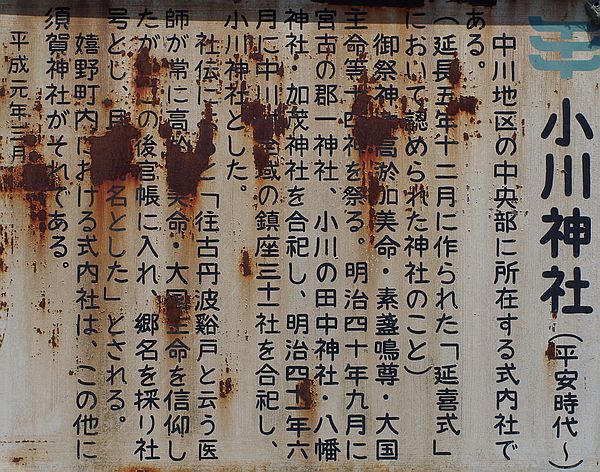 小川神社(平安時代〜)
中川地区の中央部に所在する式内社で
ある。
(延長五年十二月に作られた「延喜式」
において認められた神社のこと)
御祭神は高於加美命・素盞鳴尊・大国
主命等十四神を祭る。明治四十年九月に
宮古の郡一神社、小川の田中神社・八幡
神社・加茂神社を合祀し、明治四一年六
月に中川 全域の鎮座三十一社を合祀し、
小川神社とした。
社伝に 「往古丹波谿戸と云う医
師が常に高於 美命・大国主命を信仰し
たが、この後官帳に入れ、郷名を採り社
号とし、 名とした」とされる。
嬉野町内における式内社は、この他に
須賀神社がそれである。
平成元年三月